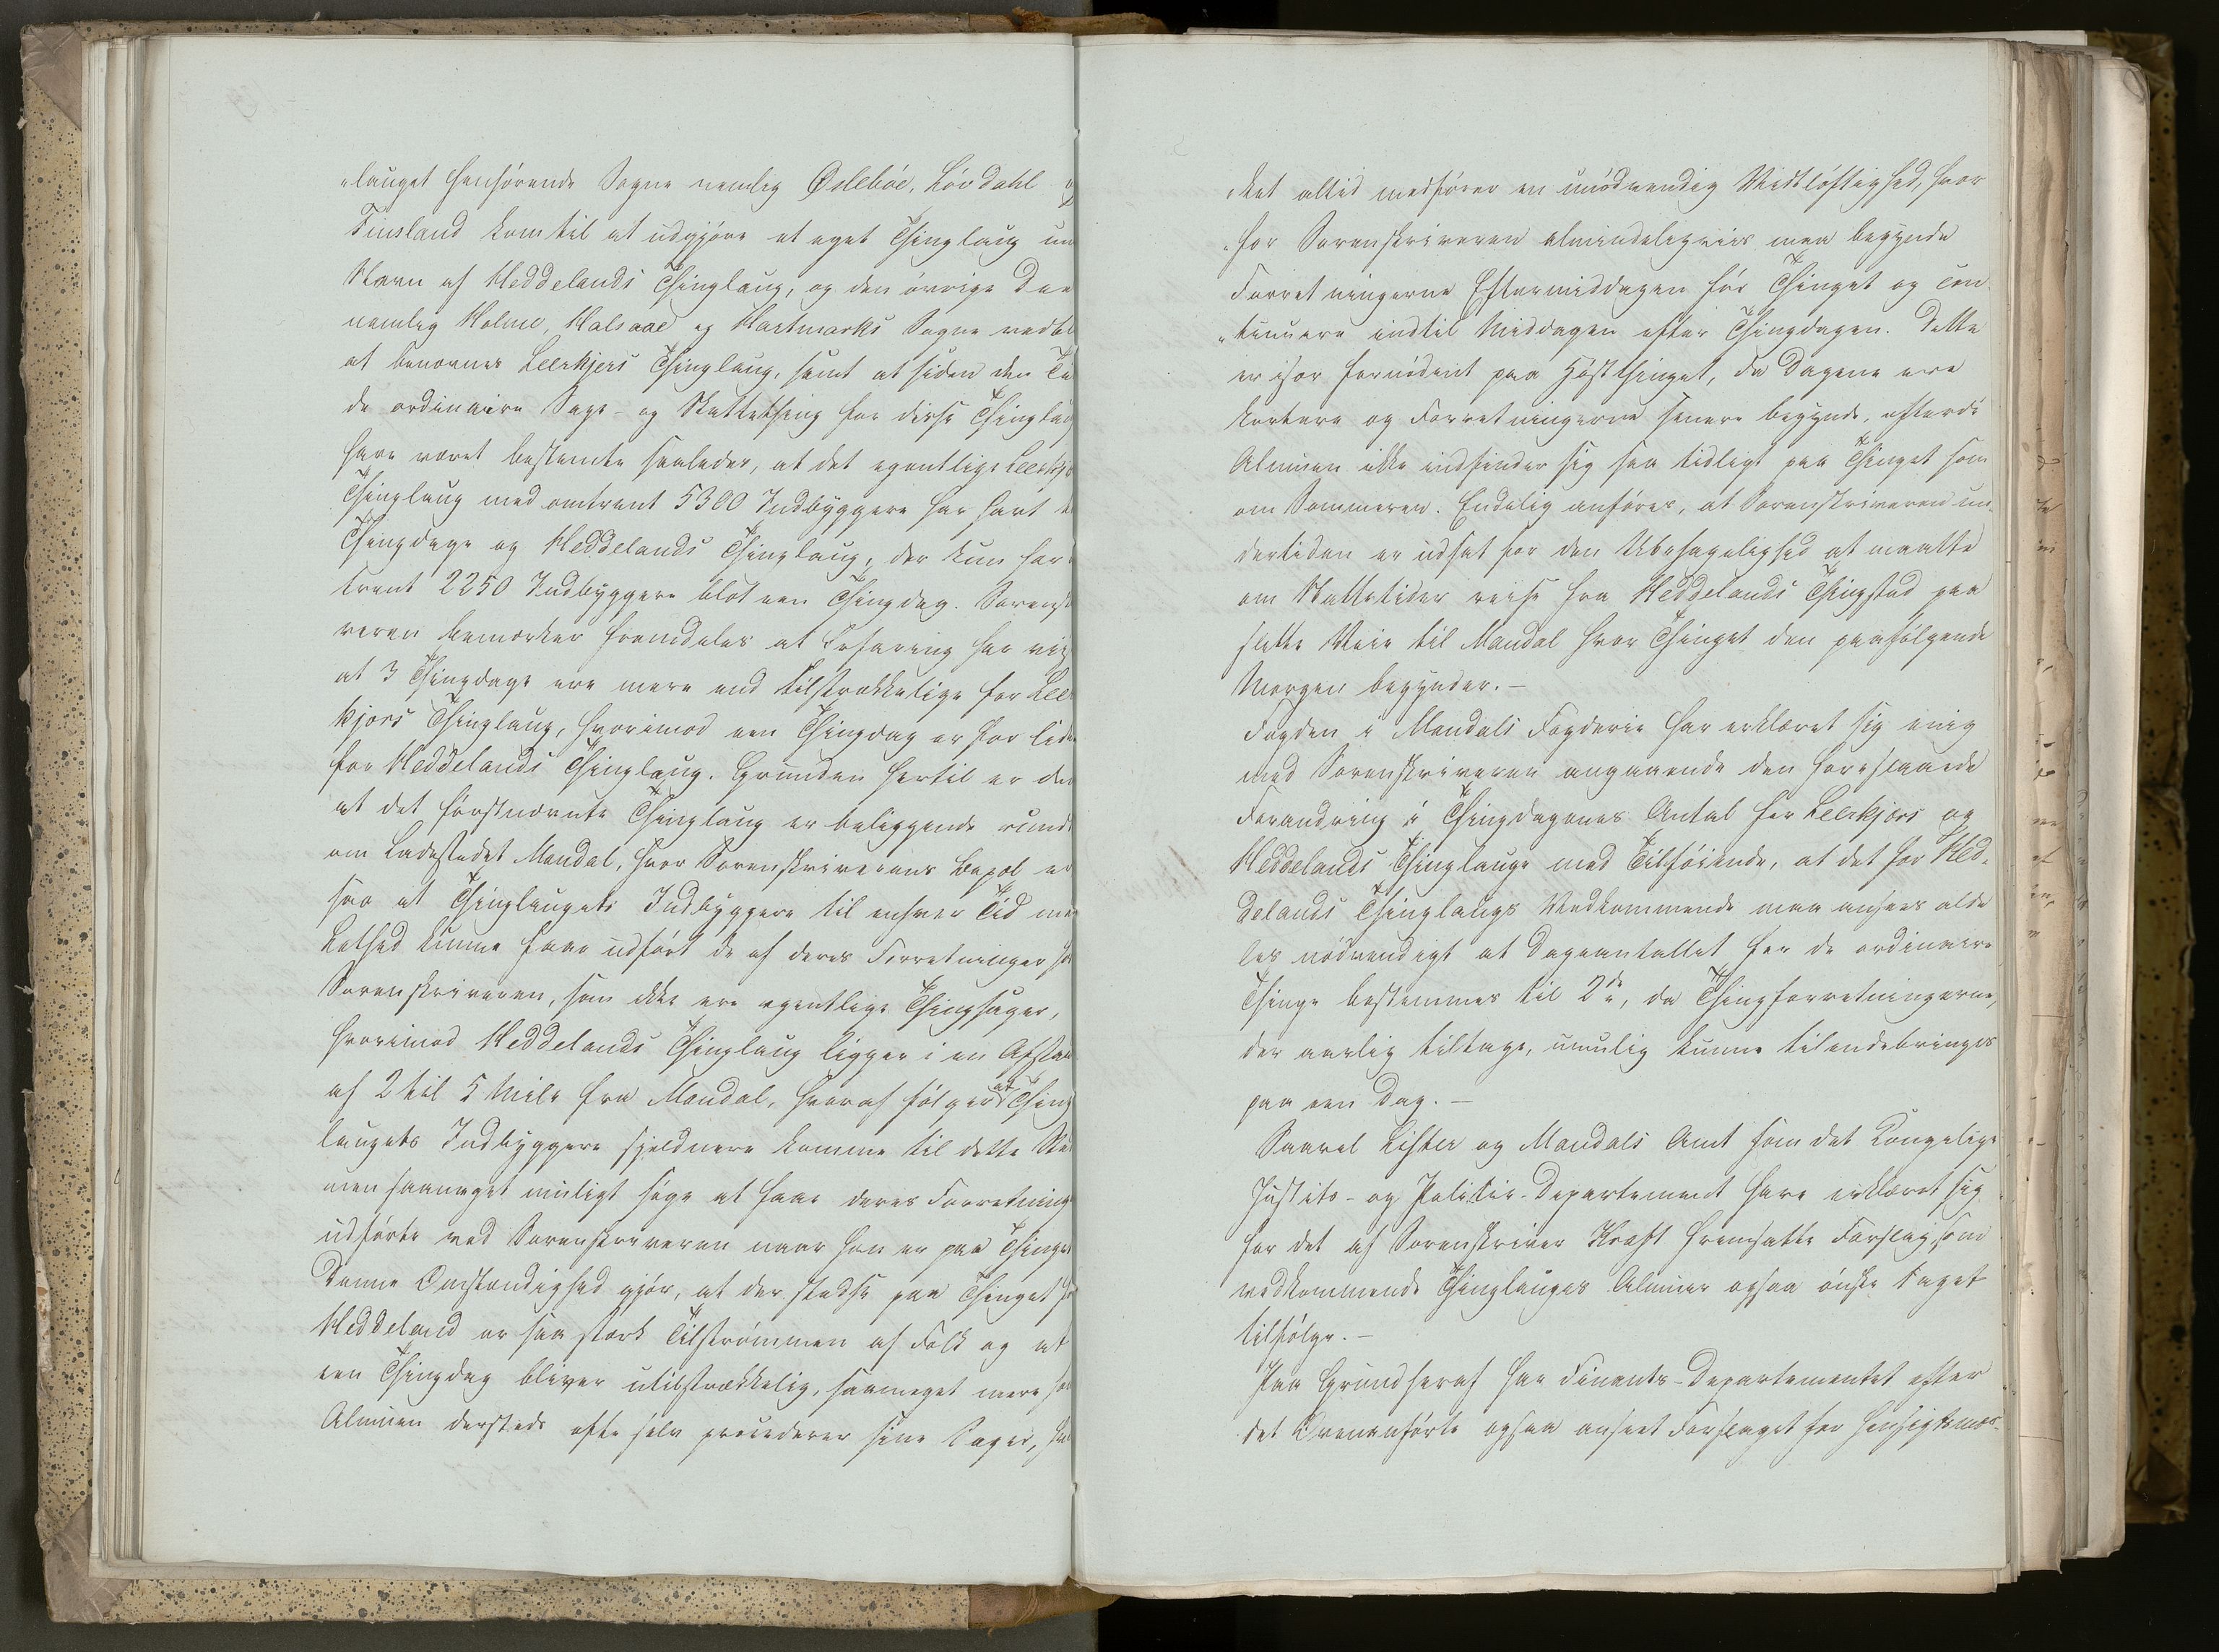 „lauget henhørende Sogne nemlig Øslebøe, Løvdahl o
Finsland kom til at udgjøre et eget Thinglaug un
Navn af Heddelands Thinglaug, og den øvrige Dee
nemlig Holme, Halsaae og Hartmarks Sogne vedbl
at benævnes Leerkjers Thinglaug, samt at siden den Ti
de ordinaire Sage- og Skattething for disse Thinglau
have været bestemte saaledes, at det egentlige Leerkjæ
Thinglaug med omtrent 5300 Indbyggere har havt
Thingdage og Heddelands Thinglaug, der kun har
trent 2250 Indbyggere blot een Thingdag. Sorensk
veren bemærker fremdeles at Erfaring har viis
at 3 Thingdage ere mere end tilstrækkelige for Lee
kjærs Thinglaug, hvorimod een Thingdag er for lide
for Heddelands Thinglaug. Grunden hertil er den
at det førstnævnte Thinglaug er beliggende rundt
om Ladestedet Mandal, hvor Sorenskriverens Bopæl er
saa at Thinglaugets Indbyggere til enhver Tid med
Lethed kunne faae udført de af deres Forretninger hos
Sorenskriveren, som ikke ere egentlige Thingsager,
hvorimod Heddelands Thinglaug ligger i en Afstan
af 2 til 5 Mile fra Mandal, hvoraf følger at Thing
laugets Indbyggere sjeldnere komme til dette Sted
men saameget muligt søge at faae deres Forretning
udførte ved Sorenskriveren naar han er paa Thinge
Denne Omstændighed gjør, at der stedse paa Thinget
Heddeland er saa stærk Tilstrømmen af Folk og at
een Thingdag bliver utilstrækkelig, saameget mere som
Almuen dersteds ofte selv procederer sine Sager, hvil
„ket altid medfører en unødvendig Vidtløftighed, hvor
„for Sorenskriveren almindeligviis maa begynde
Forretningerne Eftermiddagen før Thinget og con
„tinuere indtil Middagen efter Thingdagen. Dette
er især fornødent paa Høstthinget, da Dagene ere
kortere og Forretningerne senere begynde, efterdi
Almuen ikke indfinder sig saa tidligt paa Thinget som
om Sommeren. Endelig anføres, at Sorenskriveren un
dertiden er udsat for den Ubehagelighed at maatte
om Nattetider reise fra Heddelands Thingstad paa
slette Veie til Mandal hvor Thinget den paafølgende
Morgen begynder. —
Fogden i Mandals Fogderie har erklæret sig enig
med Sorenskriveren angaaende den foreslaaede
Forandring i Thingdagenes Antal for Leerkjærs og
Heddelands Thinglauge med Tilføiende, at det for Hed,
delands Thinglaugs Vedkommende maa ansees alde
les nødvendigt at Dageantallet for de ordinaire
Thinge bestemmes til 2de, da Thingforretningerne,
der aarlig tiltage, umulig kunne tilendebringes
paa een Dag. —
Saavel Lister og Mandals Amt som det Kongelige
Justits- og Politie-Departement have erklæret sig
for det af Sorenskriver Kraft fremsatte Forslag, som
vedkommende Thinglauges Almuer ogsaa ønske taget
tilfølge. —
Paa Grund heraf har Finants-Departementet efter
det Ovenanførte ogsaa anseet Forslaget for hensigtsmæs-